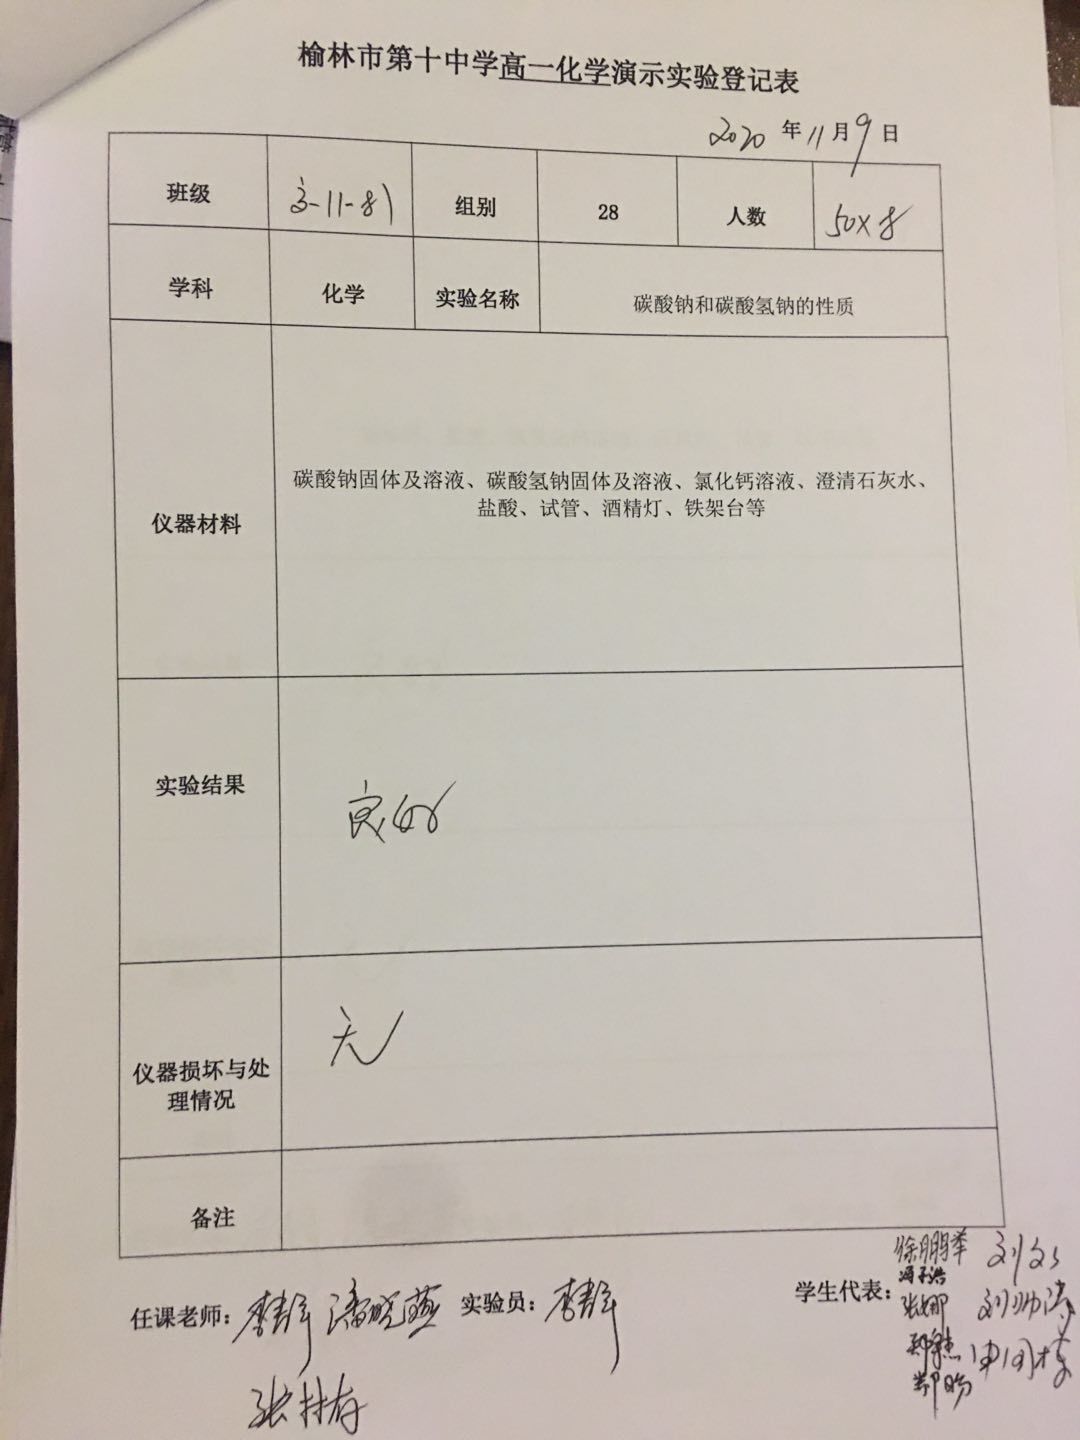 榆林市第十中学高一化学演示实验登记表
2020 年 11 月 9 日
班级 组别 28 人数 50×8
学科 化学 实验名称 碳酸钠和碳酸氢钠的性质
仪器材料
碳酸钠固体及溶液、碳酸氢钠固体及溶液、氯化钙溶液、澄清石灰水、
盐酸、试管、酒精灯、铁架台等
实验结果 良好
仪器损坏与处
理情况
无
备注
任课老师： 潘晓燕 实验员： 学生代表：
徐鹏举
冯子浩
张娜